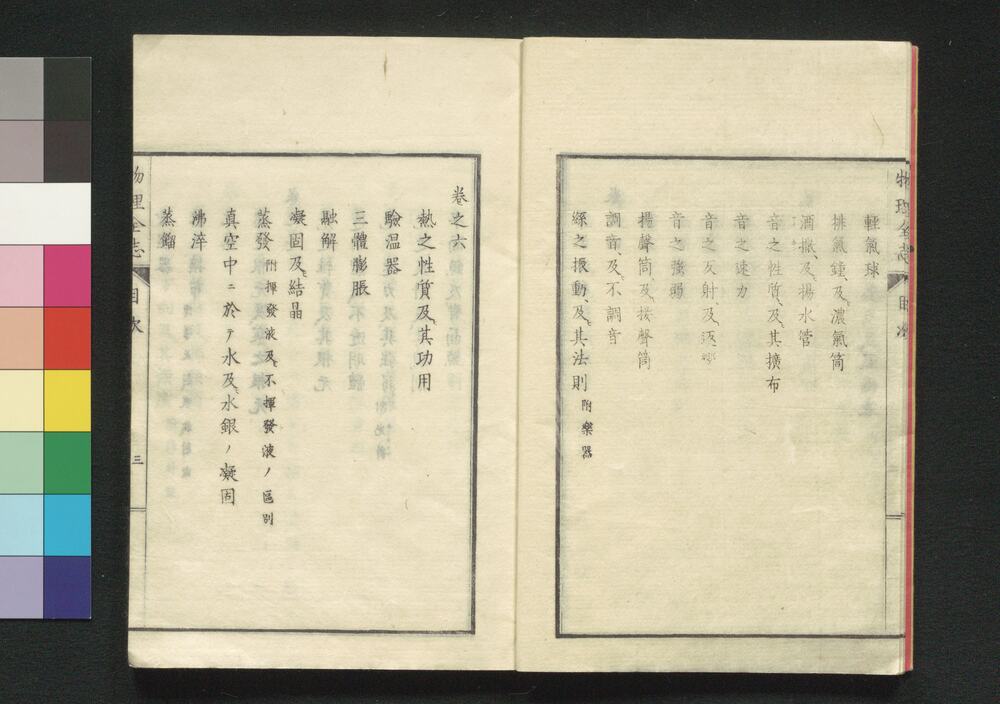 物理全志
目次
輕氣球
排氣鐘、及濃氣筒
酒撒、及揚水管
音之性質、及其擴布
音之速力
音之反射、及返響
音之強弱
揚聲筒、及接聲筒
調音、及不調音
絲之振動、及其法則 附樂器
卷之六
熱之性質及其功用
驗溫器
三體膨脹
融解
凝固及結晶
蒸發 附揮發液及不揮發液ノ區別
真空中ニ於テ水及水銀ノ凝固
沸淬
蒸餾
物理全志
目次
三